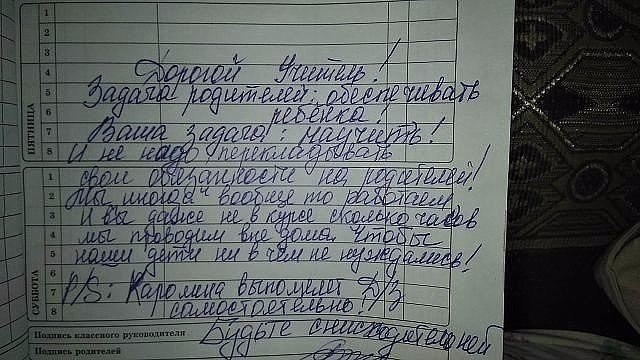 1
2
3
4
Дорогой Учитель!
5
Задача родителей: обеспечивать
6
ребёнка!
7
Ваша задача: научить!
8
И не надо перекладывать
ПЯТНИЦА
1
свои обязанности на родителей!
2
Мы иногда вообще то работаем
3
И вы даже не в курсе сколько часов
4
мы проводим вне дома. Чтобы
5
наши дети ни в чём не нуждались!
6
7
P/S: Каролина выполняет Д/з
8
самостоятельно!
СУББОТА
Будьте снисходительней
Подпись классного руководителя
Подпись родителей